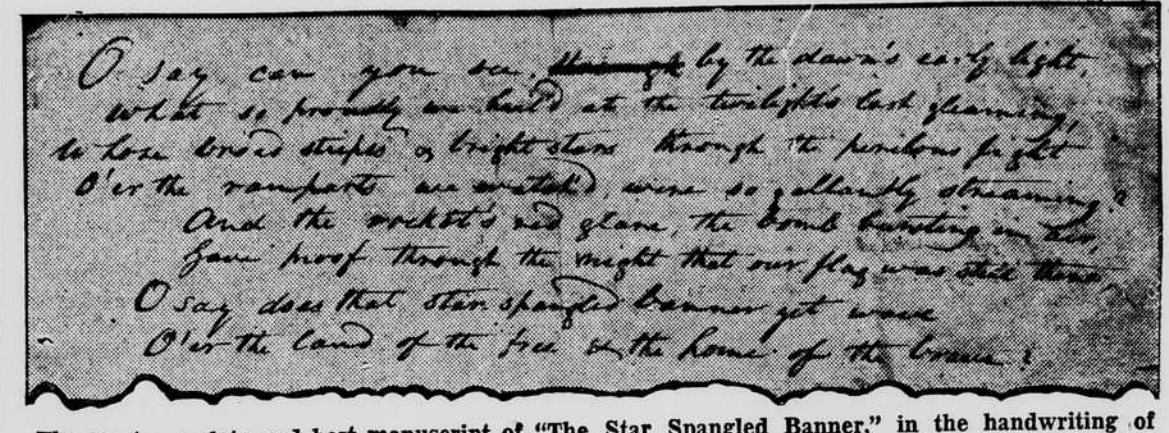 O say can you see, through by the dawn's early light,
What so proudly we hail'd at the twilight's last gleaming,
Whose broad stripes & bright stars through the perilous fight
O'er the ramparts we watch'd, were so gallantly streaming?
And the rocket's red glare, the bomb bursting in air,
Gave proof through the night that our flag was still there,
O say does that star spangled banner yet wave
O'er the land of the free & the home of the brave?
manuscript of "The Star Spangled Banner," in the handwriting of